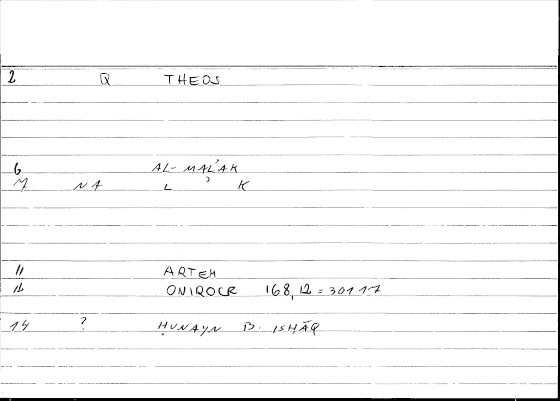 2 Q THEOS
6 AL-MAL'AK
M NA L ʾ K
11 ARTEM
12 ONIROCR 168,12 = 301 17
14 ? ḤUNAYN B. ISḤĀQ